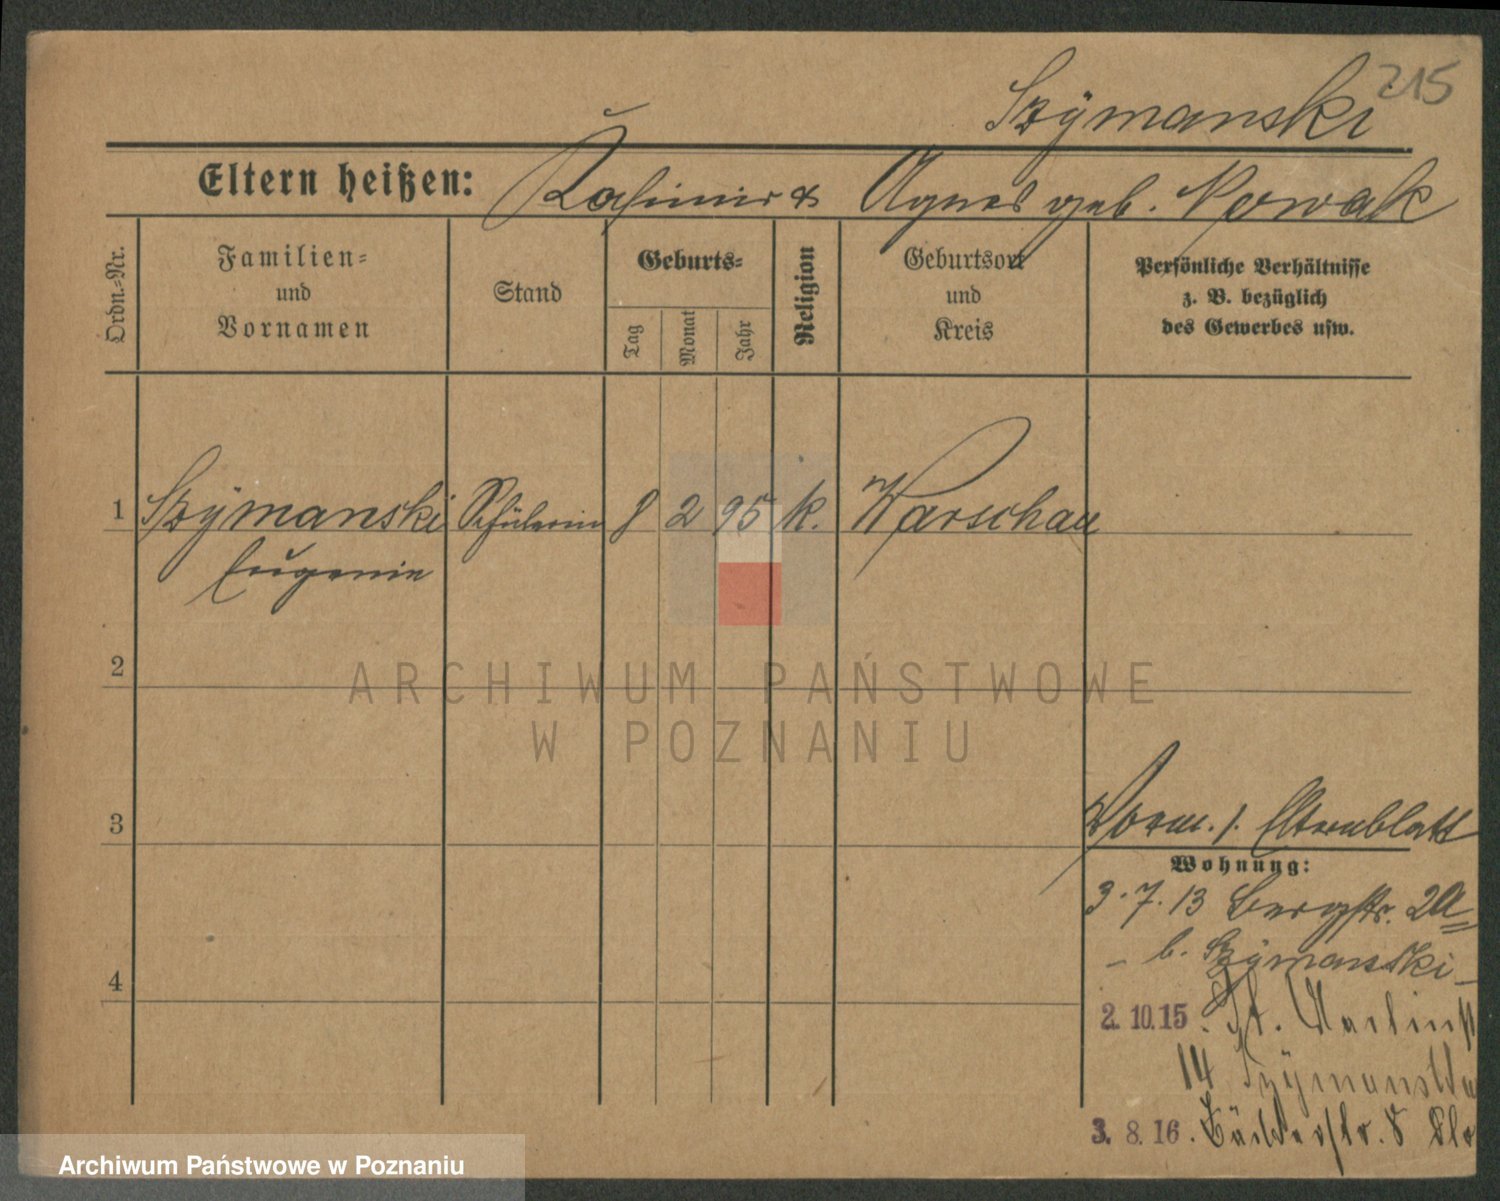 215
Szÿmanski
Eltern heißen: Kasimir & Agnes geb. Nowak
Ordn.-Nr.
Familien-
und
Vornamen
Stand
Geburts-
Tag
Monat
Jahr
Religion
Geburtsort
und
Kreis
Persönliche Verhältnisse
z. B. bezüglich
des Gewerbes usw.
1 Szÿmanski Schülerin 8 2 95 k. Warschau
Eugenie
2
ARCHIWUM PAŃSTWOWE
W POZNANIU
3
Vorm. s. Elternblatt
Wohnung:
3.7.13 Bergstr. 2a
- b. Szÿmanski -
4
2. 10. 15. St. Martinst
14 Szÿmanska
3. 8. 16. Bäckerstr. 8
Archiwum Państwowe w Poznaniu